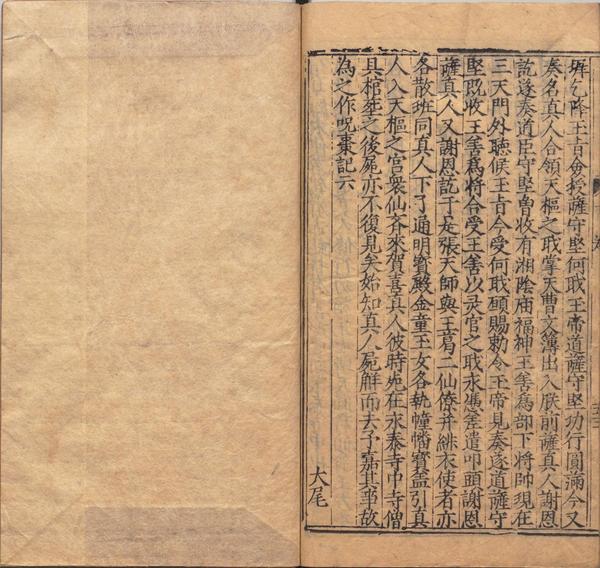 墀乞降王旨僉授薩守堅何戢玉帝道薩守堅功行圓滿今又
奏名真人合領天樞之戢掌天曹文簿出入朕前薩真人謝恩
訖遂奏道臣守堅曾收有湘陰庙福神王善爲部下將帥現在
三天門外聽候王旨今受何戢願賜勅令玉帝見奏遂道薩守
堅既收王善爲將合受王善以灵官之戢永憑差遣叩頭謝恩
薩真人又謝恩訖于是張天師與王葛二仙僚并緋衣使者亦
各散班同真人下了通明寳殿金童玉女各執幢幡寳盖引真
人入天樞之宮衆仙斉來賀喜真人彼時屍在永泰寺中寺僧
具棺塟之後屍亦不復見矣始知真人屍解而去予嘉其事故
為之作呪棗記云
大尾